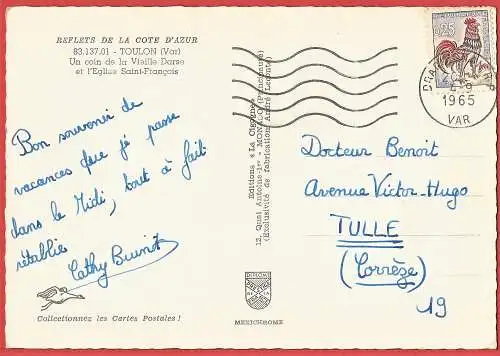 REFLETS DE LA COTE D'AZUR
83.137.01 - TOULON (Var)
Un coin de la Vieille Darse
et l'Eglise Saint-François
Bon souvenir de
vacances que je passe
dans le Midi, tout à fait
rétablie
Cathy
Collectionnez les Cartes Postales !
Editions "La Cigogne"
12, Quai Antoine-1er - MONACO (Principauté)
(Exclusivité de fabrication André Leconte)
DIPLOME
MEXICHROME
0,25
4-9
1965
VAR
Docteur Benoit
Avenue Victor-Hugo
TULLE
(Corrèze)
19